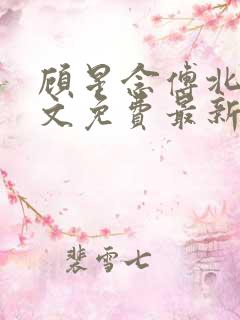 顾星念傅北
文免费最新
裴雪七